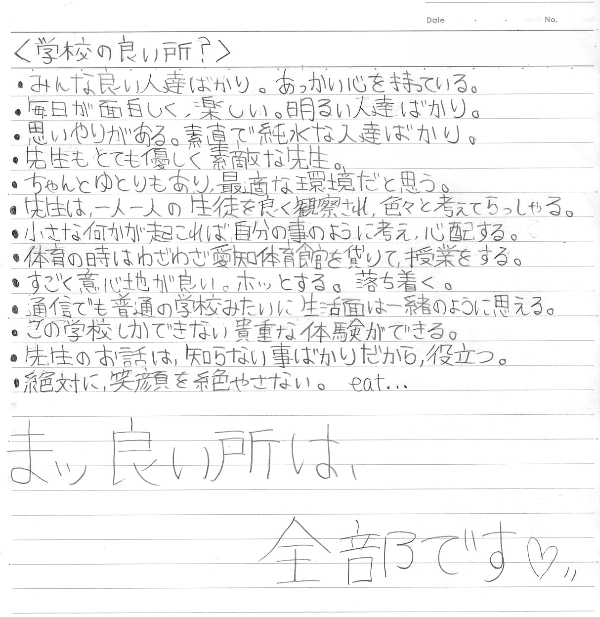 Date ・ ・ No.
〈学校の良い所？〉
・みんな良い人達ばかり。あったかい心を持っている。
・毎日が面白しく、楽しい。明るい人達ばかり。
・思いやりがある。素直で純水な人達ばかり。
・先生もとても優しく素敵な先生。
・ちゃんとゆとりもあり、最適な環境だと思う。
・先生は、一人一人の生徒を良く観察され、色々と考えてらっしゃる。
・小さな何かが起これば自分の事のように考え、心配する。
・体育の時はわざわざ愛知体育館を貸りて、授業をする。
・すごく意心地が良い。ホッとする。落ち着く。
・通信でも普通の学校みたいに生活面は一緒のように思える。
・この学校しかできない貴重な体験ができる。
・先生のお話は、知らない事ばかりだから、役立つ。
・絶対に、笑顔を絶やさない。 eat...
まッ良い所は、
全部です♡〃